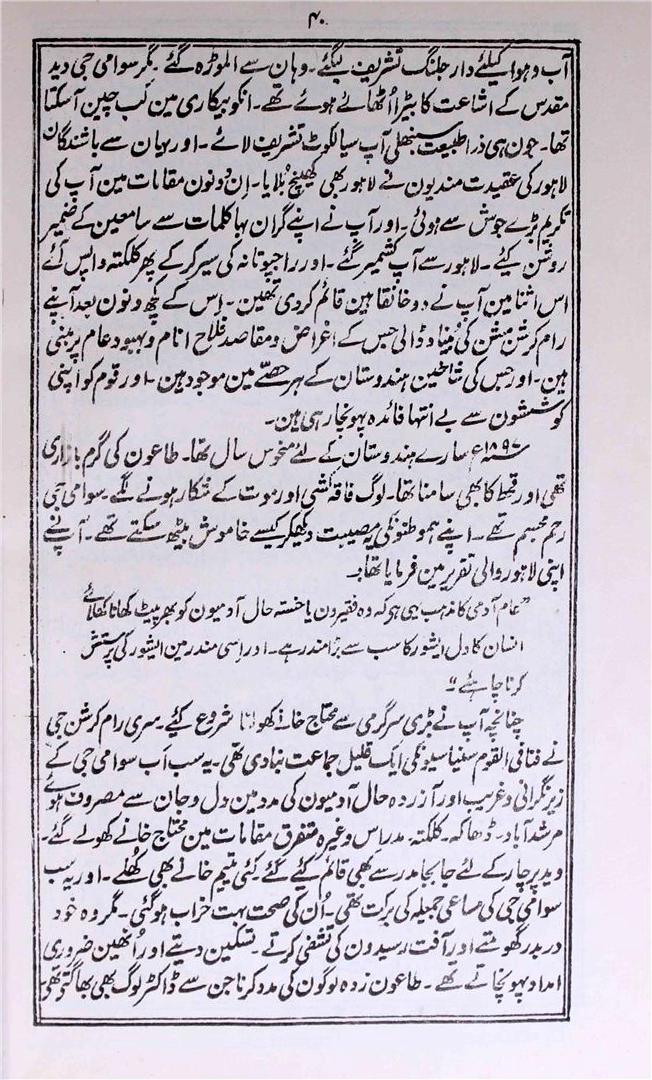 ۴۰
آب و ہوا کیلئے دارجلنگ تشریف لیگئے۔ وہان سے الموڑہ گئے۔ مگر سوامی جی دید
مقدس کے اشاعت کا بیڑا اُٹھائے ہوئے تھے۔ انکو بیکاری مین کب چین آسکتا
تھا۔ جون ہی ذرا طبیعت سنبھلی آپ سیالکوٹ تشریف لائے۔ اور یہان سے باشندگان
لاہور کی عقیدت مندیون نے لاہور بھی کھینچ بُلایا۔ اِن دونون مقامات مین آپ کی
تکریم بڑے جوش سے ہوئی۔ اور آپ نے اپنے گران بہا کلمات سے سامعین کے ضمیر
روشن کیئے۔ لاہور سے آپ کشمیر گئے۔ اور راجپوتانہ کی سیر کر کے پھر کلکتہ واپس آئے
اس اثنا مین آپ نے دو خانقاہین قائم کر دی تھین۔ اِس کے کچھ دنون بعد آپنے
رام کرشن مشن کی بُنیاد ڈالی جس کے اغراض و مقاصد فلاح انام و بہبود عام پر مبنی
ہین۔ اور جس کی شاخین ہندوستان کے ہر حصے مین موجود ہین۔ اور قوم کو اپنی
کوششون سے بے انتہا فائدہ پہونچا رہی ہین۔
۱۸۹۷ء سارے ہندوستان کے لئے منحوس سال تھا۔ طاعون کی گرم بازاری
تھی اور قحط کا بھی سامنا تھا۔ لوگ فاقہ کشی اور موت کے شکار ہونے لگے۔ سوامی جی
رحم مجسم تھے۔ اپنے ہموطنونکی یہ مصیبت دیکھکر کیسے خاموش بیٹھ سکتے تھے۔ آپنے
اپنی لاہور والی تقریر مین فرمایا تھا:۔
”عام آدمی کا مذہب یہی ہی کہ وہ فقیرون یا خستہ حال آدمیون کو بھر پیٹ کھانا کھلائے
انسان کا دل ایشور کا سب سے بڑا مندر ہے۔ اور اِسی مندر مین ایشور کی پرستش
کرنا چاہئے“
چنانچہ آپ نے بڑی سرگرمی سے محتاج خانے کھولنا شروع کیئے۔ سری رام کرشن جی
نے فنافی القوم سنیاسیونکی ایک قلیل جماعت بنادی تھی۔ یہ سب اَب سوامی جی کے
زیر نگرانی و غریب اور آزردہ حال آدمیون کی مدد مین دل و جان سے مصروف ہوئے
مرشد آباد۔ ڈھاکہ۔ کلکتہ۔ مدراس وغیرہ متفرق مقامات مین محتاج خانے کھولے گئے۔
وید پرچار کے لئے جابجا مدرسے بھی قائم کیئے گئے۔ کئی یتیم خانے بھی کُھلے۔ اور یہ سب
سوامی جی کی مساعی جمیلہ کی برکت تھی۔ اُن کی صحت بہت خراب ہو گئی۔ مگر وہ خود
در بدر گھومتے اور آفت رسیدون کی تشفی کرتے۔ تسکین دیتے اور اُنھین ضروری
امداد پہونچاتے تھے۔ طاعون زدہ لوگون کی مدد کرنا جن سے ڈاکٹر لوگ بھی بھاگتے تھے